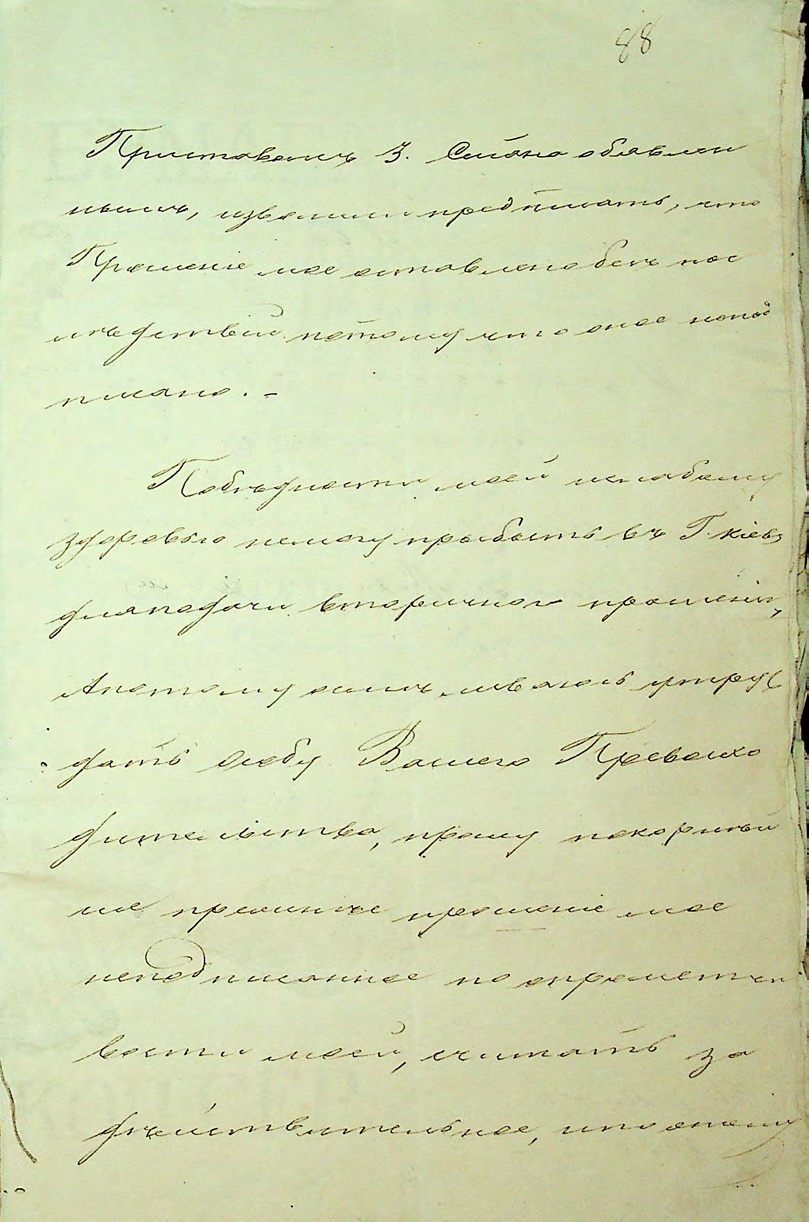 88
Приставомъ 3. Стана объявлен
нымъ, изволили предписать, что
Прошеніе мое оставлено безъ пос
лѣдствій потому что оное непод
писано. -
Побѣдности моей ислабому
здоровью немогу прибыть въ Г. Кіевъ
дляподачи вторичного прошенія,
Апотому осмѣливаюсь утру
дать Особу Вашего Превосхо
дительства, прошу покорнѣй
ше прежнее прошеніе мое
неподписанное по опрометчи
вости моей, считать за
дѣйствительное, ипооному